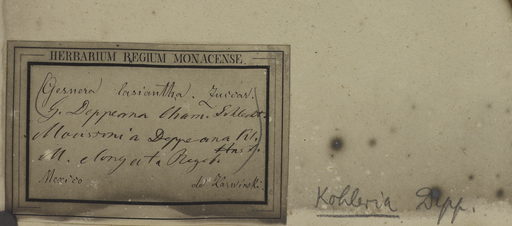 HERBARIUM REGIUM MONACENSE.
(Gesnera lasiantha. Zuccar.
G. Deppeana Cham. Schlecht.
Moussonia Deppeana Kl.
Hnst.
M. elongata Regel.
Mexico de Karwinski.
Kohleria Depp.